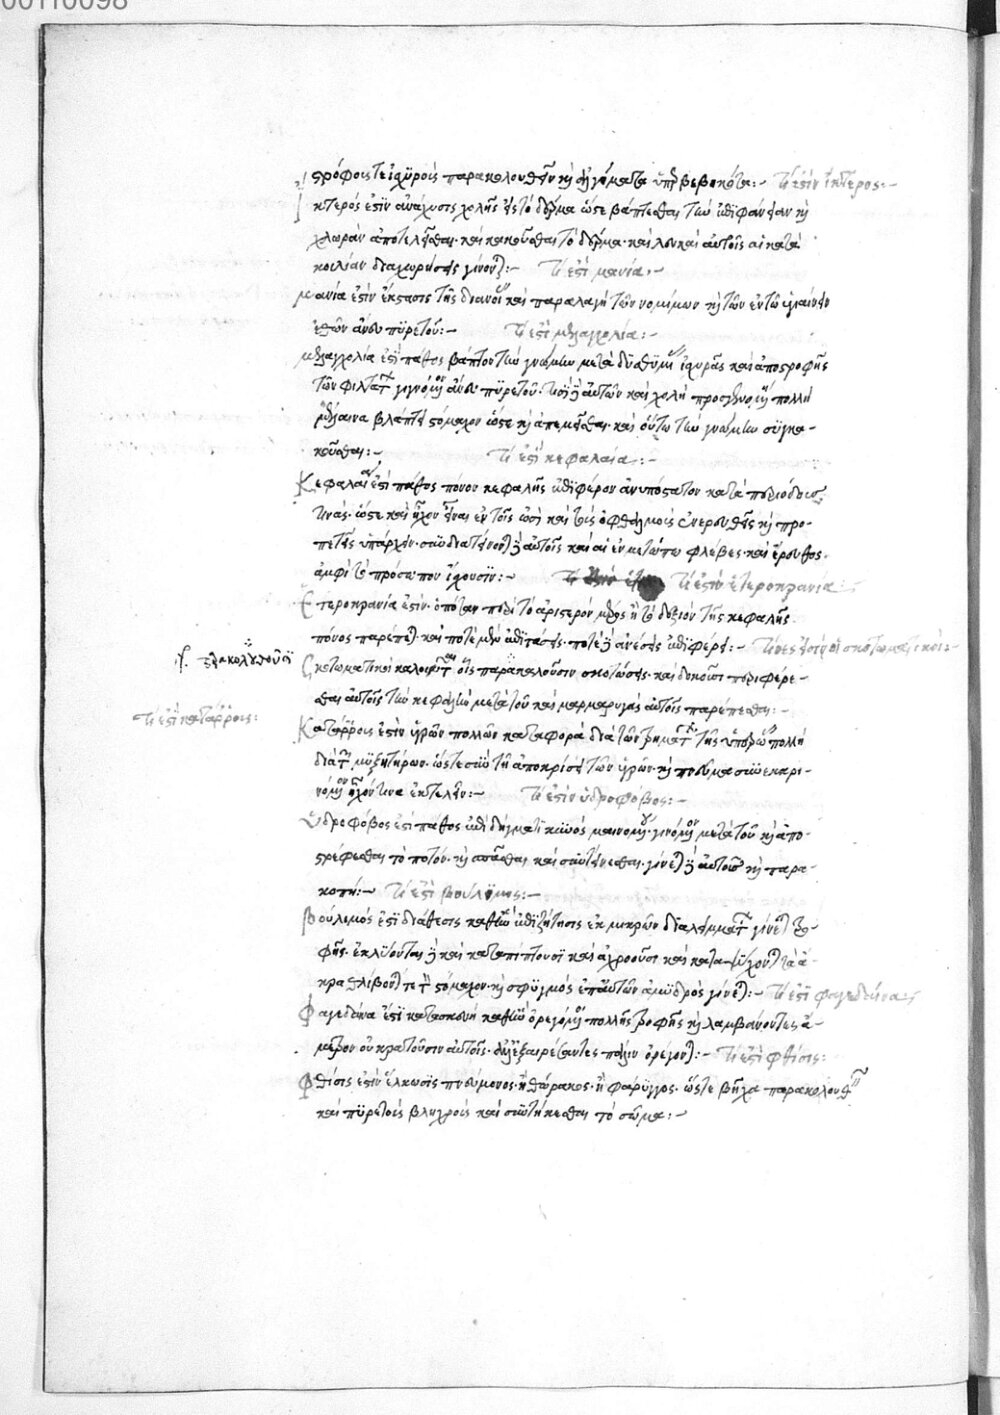 00110098
στρόφοις τε ἰσχυροῖς παρακολουθεῖν καὶ ὑπερβεβηκότα:- Τί ἐστιν ἴκτερος:-
Ἴκτερός ἐστιν ἀνάχυσις χολῆς εἰς τὸ δέρμα ὥστε βάπτεσθαι τὴν ἐπιφάνειαν καὶ
χλωρὰν ἀποτελεῖσθαι· καὶ κακοῦσθαι τὸ δέρμα· καὶ λευκαὶ αὐτοῖς αἱ κατὰ
κοιλίαν διαχωρήσεις γίνονται:- Τί ἐστι μανία:-
Μανία ἐστὶν ἔκστασις τῆς διανοίας καὶ παραλλαγὴ τῶν νομίμων καὶ τῶν ἐν τῷ ὑγιαίνειν
ἐθῶν ἄνευ πυρετοῦ:- Τί ἐστι μελαγχολία:-
Μελαγχολία ἐστὶ πάθος βάπτον τὴν γνώμην μετὰ δυσθυμίας ἰσχυρᾶς καὶ ἀποστροφῆς
τῶν φιλτάτων γινόμενον ἄνευ πυρετοῦ· τισὶ δὲ αὐτῶν καὶ χολὴ προσγενομένη πολλὴ
μέλαινα βλάπτει στόμαχον ὥστε καὶ ἀπεμεῖσθαι· καὶ οὕτω τὴν γνώμην συγκα-
κοῦσθαι:- Τί ἐστι κεφαλαία:-
Κεφαλαία ἐστὶ πάθος πόνον κεφαλῆς ἐπιφέρον ἀνυπόστατον κατὰ περιόδους
τινάς· ὥστε καὶ ἦχον εἶναι ἐν τοῖς ὠσὶ καὶ τοῖς ὀφθαλμοῖς ἐνερευθεῖς καὶ προ-
πετεῖς ὑπάρχειν· συνδιατείνονται δὲ αὐτοῖς καὶ αἱ ἐν μετώπῳ φλέβες· καὶ ἔρευθος
ἀμφὶ τὸ πρόσωπον ἔχουσιν:- Τί ἐστιν ἑτεροκρανία:-
Ἑτεροκρανία ἐστίν· ὁπόταν περὶ τὸ ἀριστερὸν μέρος ἢ τὸ δεξιὸν τῆς κεφαλῆς
πόνος παρέπεται· καὶ ποτὲ μὲν ἐπιτάσεις· ποτὲ δὲ ἀνέσεις ἐπιφέρει:- Τίνες εἰσὶν οἱ σκοτωματικοί:-
Σκοτωματικοὶ καλοῦνται οἷς παρακαλοῦσιν σκοτώσεις· καὶ δοκοῦσι περιφέρε-
σθαι αὐτοῖς τὴν κεφαλὴν μετὰ τοῦ καὶ μαρμαρυγὰς αὐτοῖς παρέπεσθαι:-
Τί ἐστι κατάρροις:
Κατάρροις ἐστὶν ὑγρῶν πολλῶν καταφορὰ διὰ τῶν τῆς ὑπερῴας πολλὴ
διὰ τῶν μυξητήρων· ὥστε σὺν τῇ ἀποκρίσει τῶν ὑγρῶν· καὶ πνεῦμα συνεκκρι-
νόμενον ἦχόν τινα ἐκτελεῖν:- Τί ἐστιν ὑδροφόβος:-
Ὑδροφόβος ἐστὶ πάθος ἐπὶ δήγματι κυνὸς μαινομένου· γινόμενον μετὰ τοῦ καὶ ἀπο-
στρέφεσθαι τὸ ποτόν· καὶ σπᾶσθαι καὶ συντείνεσθαι· γίνεται δὲ αὐτοῖς καὶ παρα-
κοπή:- Τί ἐστι βούλιμος:-
Βούλιμός ἐστι διάθεσις καθ' ἣν ἐπιζήτησις ἐκ μικρῶν διαλειμμάτων γίνεται τρο-
φῆς· ἐκλύονται δὲ καὶ καταπίπτουσι καὶ ἀχροοῦσι καὶ καταψύχονται τὰ ἄ-
κρα θλίβονταί τε τὸν στόμαχον· καὶ σφυγμὸς ἐπ' αὐτῶν ἀμυδρὸς γίνεται:- Τί ἐστι φαγέδαινα:-
Φαγέδαινά ἐστι κατασκευὴ καθ' ἣν ὀρεγόμενοι πολλῆς τροφῆς καὶ λαμβάνοντες ἄ-
μετρον οὐ κρατοῦσιν αὐτοῖς· ἀλλ' ἐξαιρέσαντες πάλιν ὀρέγονται:- Τί ἐστι φθίσις:
Φθίσις ἐστὶν ἕλκωσις πνεύμονος· ἢ θώρακος· ἢ φάρυγγος· ὥστε βῆχα παρακολουθεῖν
καὶ πυρετοὺς βληχροὺς καὶ συντήκεσθαι τὸ σῶμα:-